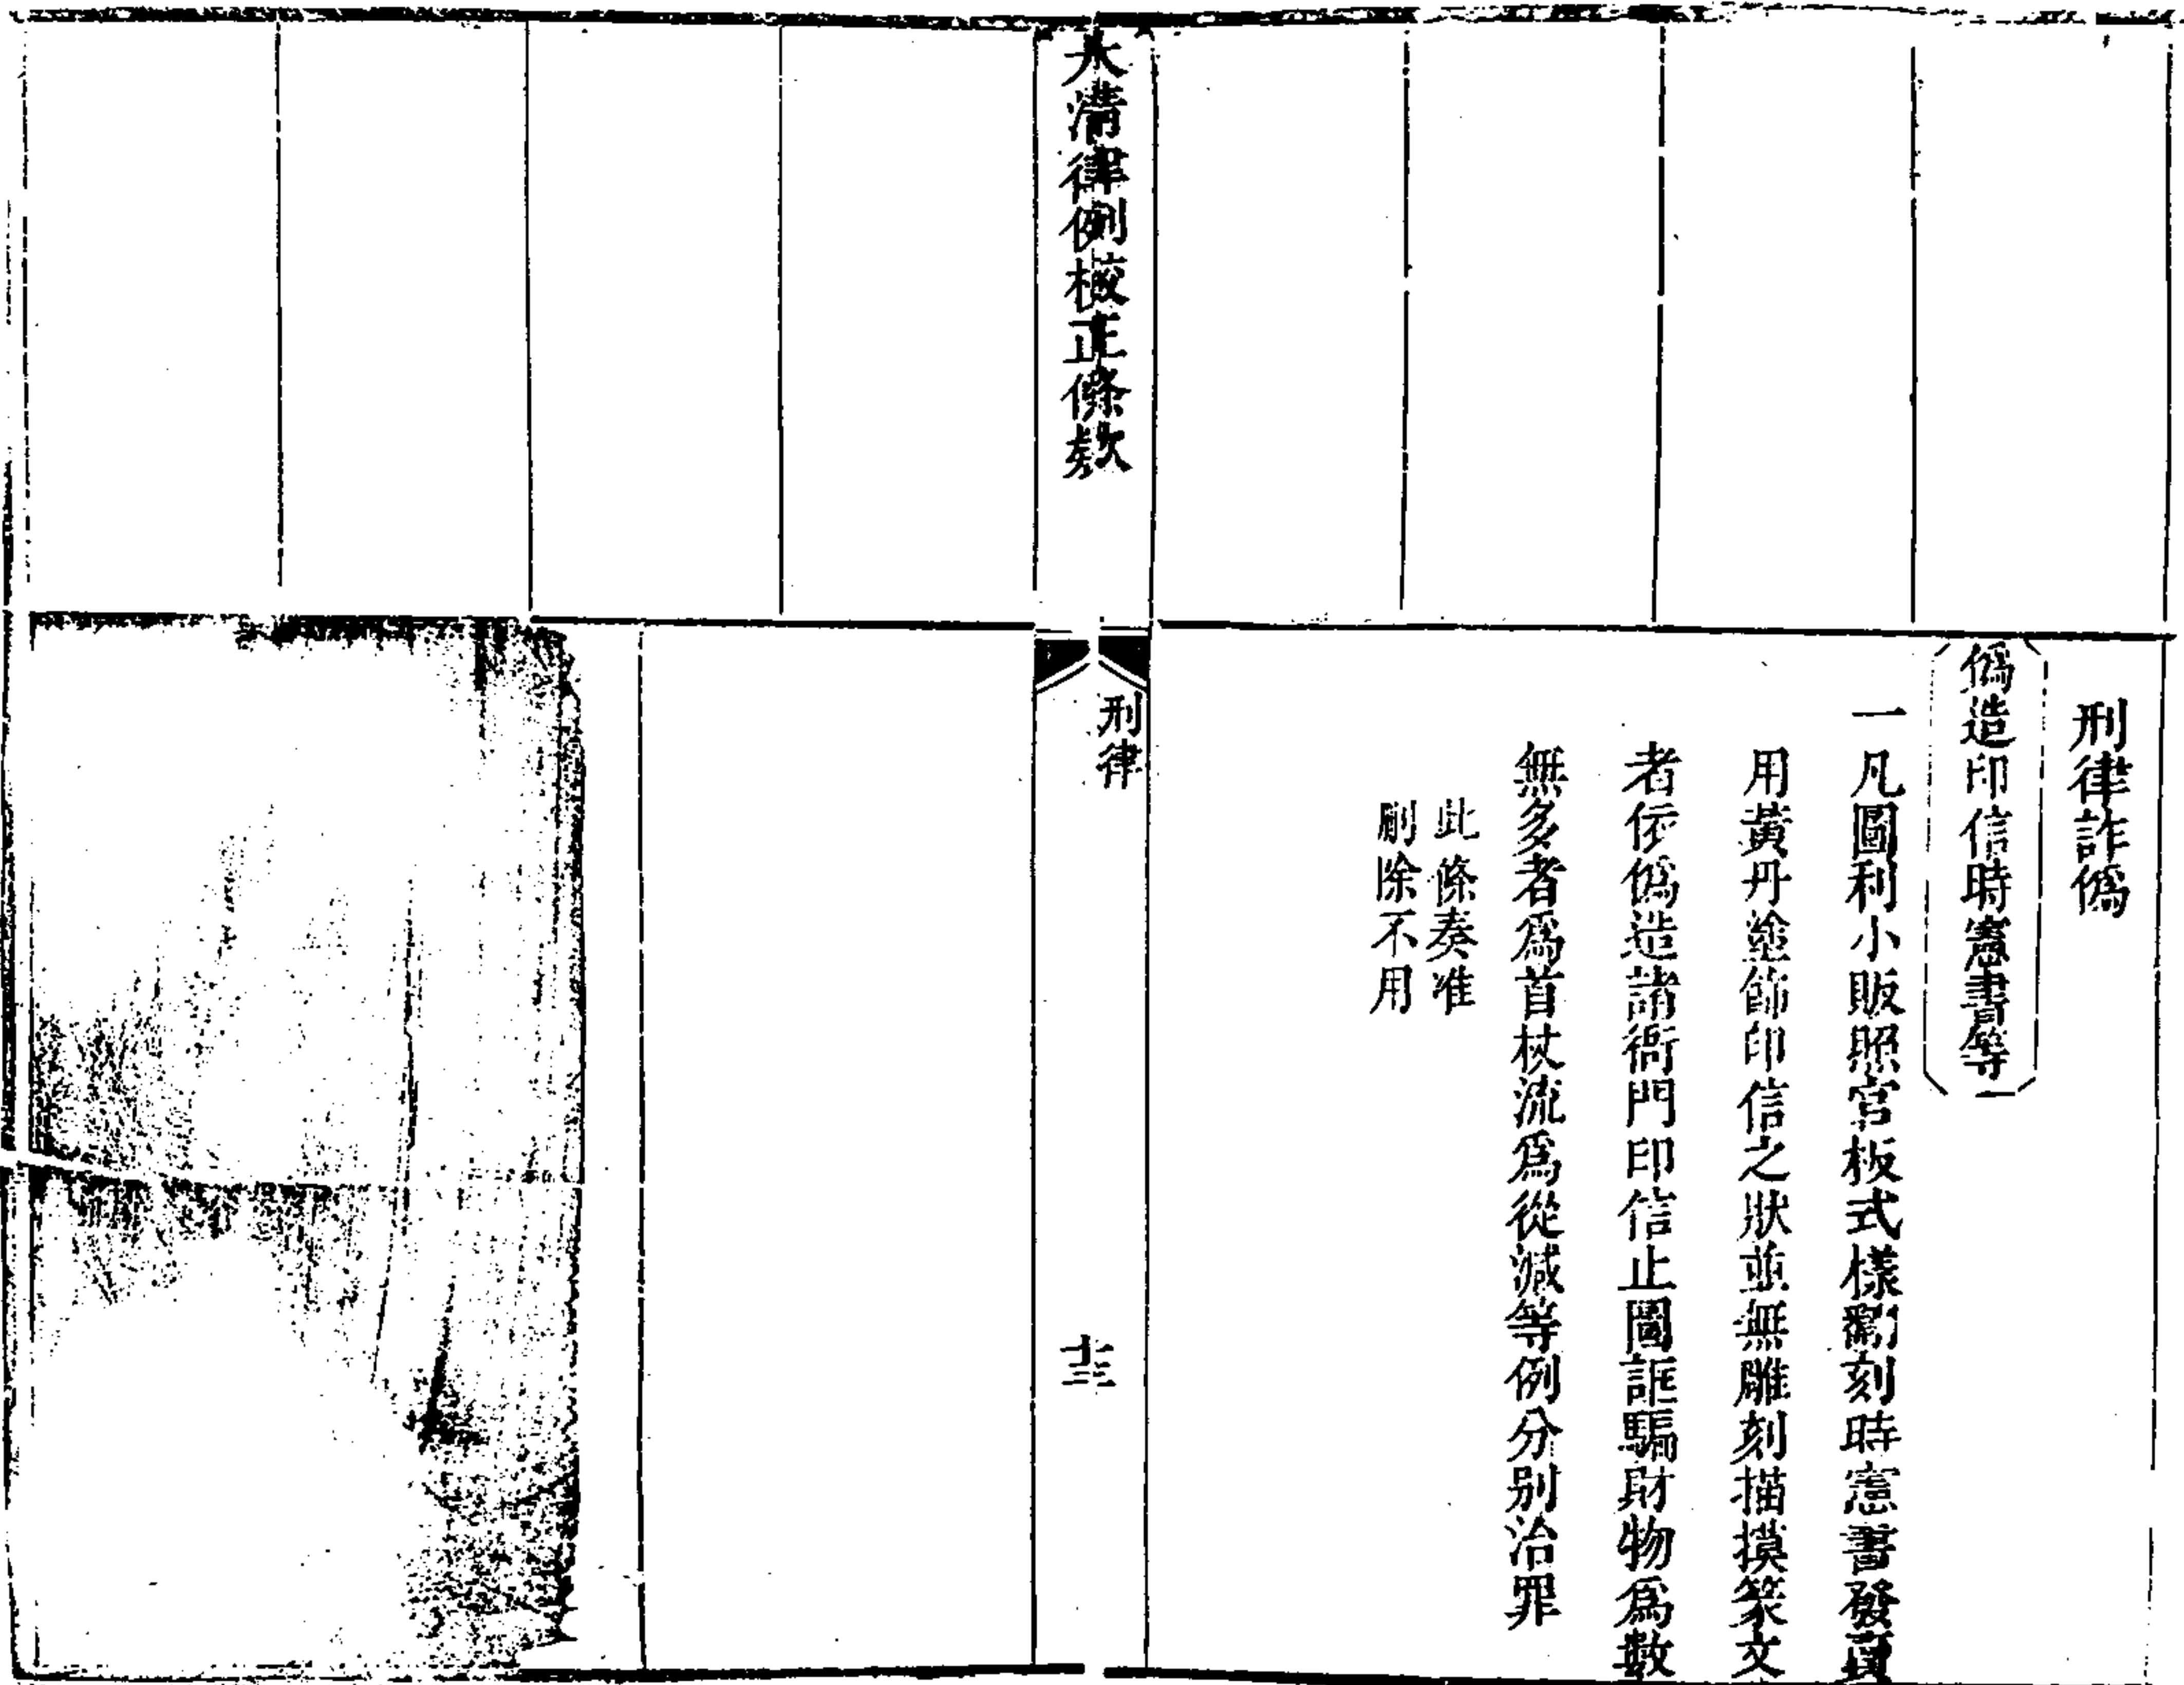 刑律詐僞
僞造印信時憲書等一
一凡圖利小販照官板式樣翻刻時憲書發賣
用黃丹塗飾印信之狀並無雕刻描摸篆文
者依僞造諸衙門印信止圖誆騙財物爲數
無多者爲首杖流爲從減等例分别治罪
此條奏准
刪除不用
大淸律例校正條款
刑律
十三